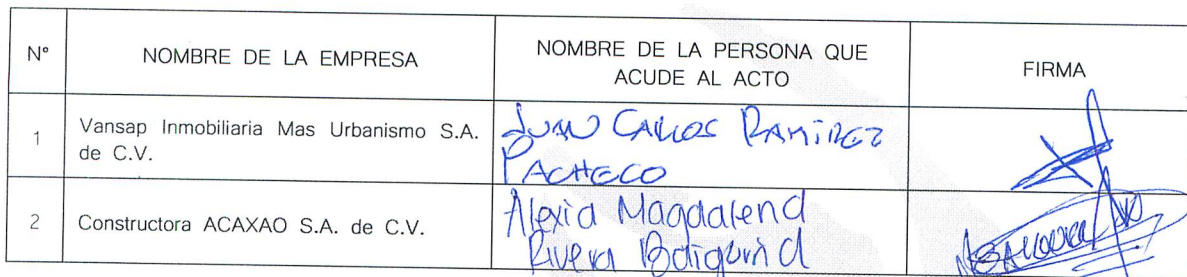 N° NOMBRE DE LA EMPRESA NOMBRE DE LA PERSONA QUE ACUDE AL ACTO FIRMA
1 Vansap Inmobiliaria Mas Urbanismo S.A. de C.V. Juan Carlos Ramirez Pacheco
2 Constructora ACAXAO S.A. de C.V. Alexia Magdalena Rivera